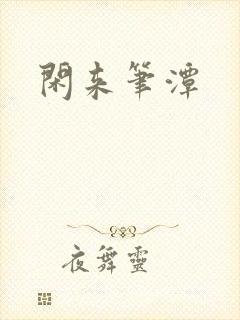 閑来筆潭
夜舞靈